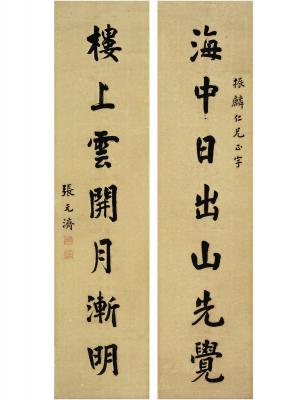 振麟仁兄正字
海中日出山先覺
樓上雲開月漸明
張元濟